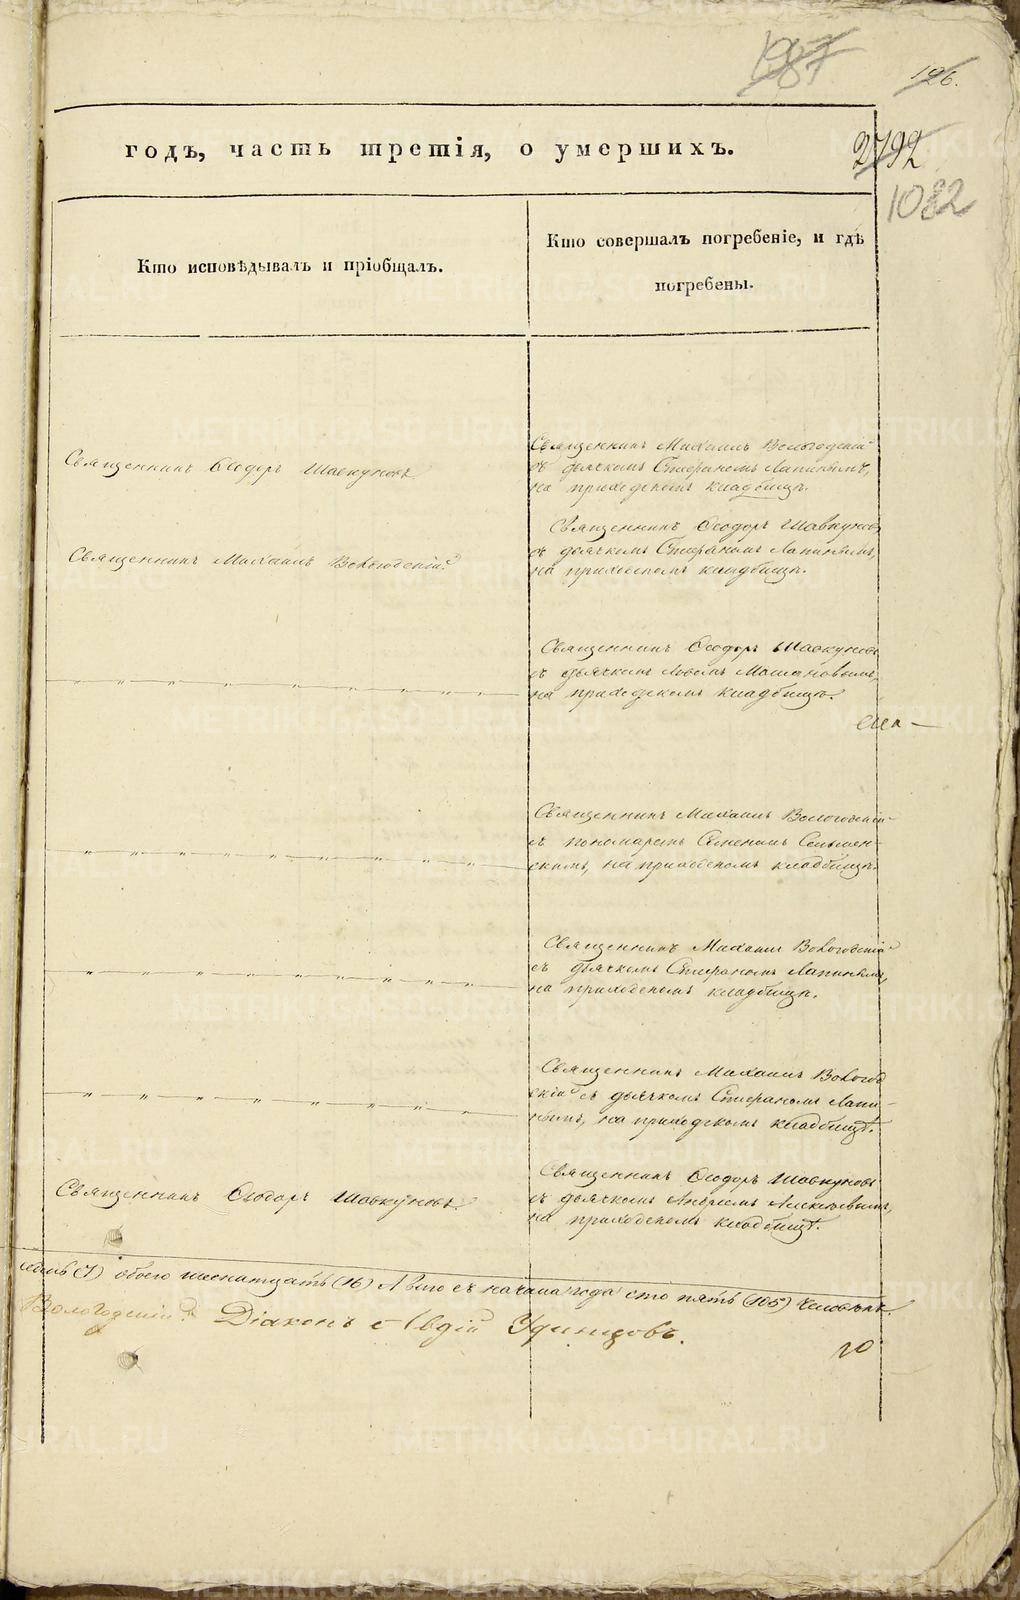 187
196.
годъ, часть третія, о умершихъ.
2792
1082
Кто исповѣдывалъ и пріобщалъ.
Кто совершалъ погребеніе, и гдѣ
погребены.
Священникъ Ѳеодоръ Шавкуновъ
Священникъ Михаилъ Вологодскій
съ дьячкомъ Стефаномъ Лапинымъ,
на приходскомъ кладбищѣ.
Священникъ Михаилъ Вологодскій
Священникъ Ѳеодоръ Шавкуновъ
съ дьячкомъ Стефаномъ Лапинымъ,
на приходскомъ кладбищѣ.
Священникъ Ѳеодоръ Шавкуновъ
съ дьячкомъ
на приходскомъ кладбищѣ.
Священникъ Михаилъ Вологодскій
съ пономаремъ
скимъ, на приходскомъ кладбищѣ.
Священникъ Михаилъ Вологодскій
съ дьячкомъ Стефаномъ Лапинымъ,
на приходскомъ кладбищѣ.
Священникъ Михаилъ Вологод
скій съ дьячкомъ Стефаномъ Лапи-
нымъ, на приходскомъ кладбищѣ.
Священникъ Ѳеодоръ Шавкуновъ
Священникъ Ѳеодоръ Шавкуновъ
съ дьячкомъ Андреемъ Алексѣевымъ,
на приходскомъ кладбищѣ.
седмь (7) обоего шеснатцать (16) А всего съ начала года сто пять (105) человѣкъ.
Вологодскій. Діаконъ Авдій Удинцовъ.
METRIKI.GASO-URAL.RU